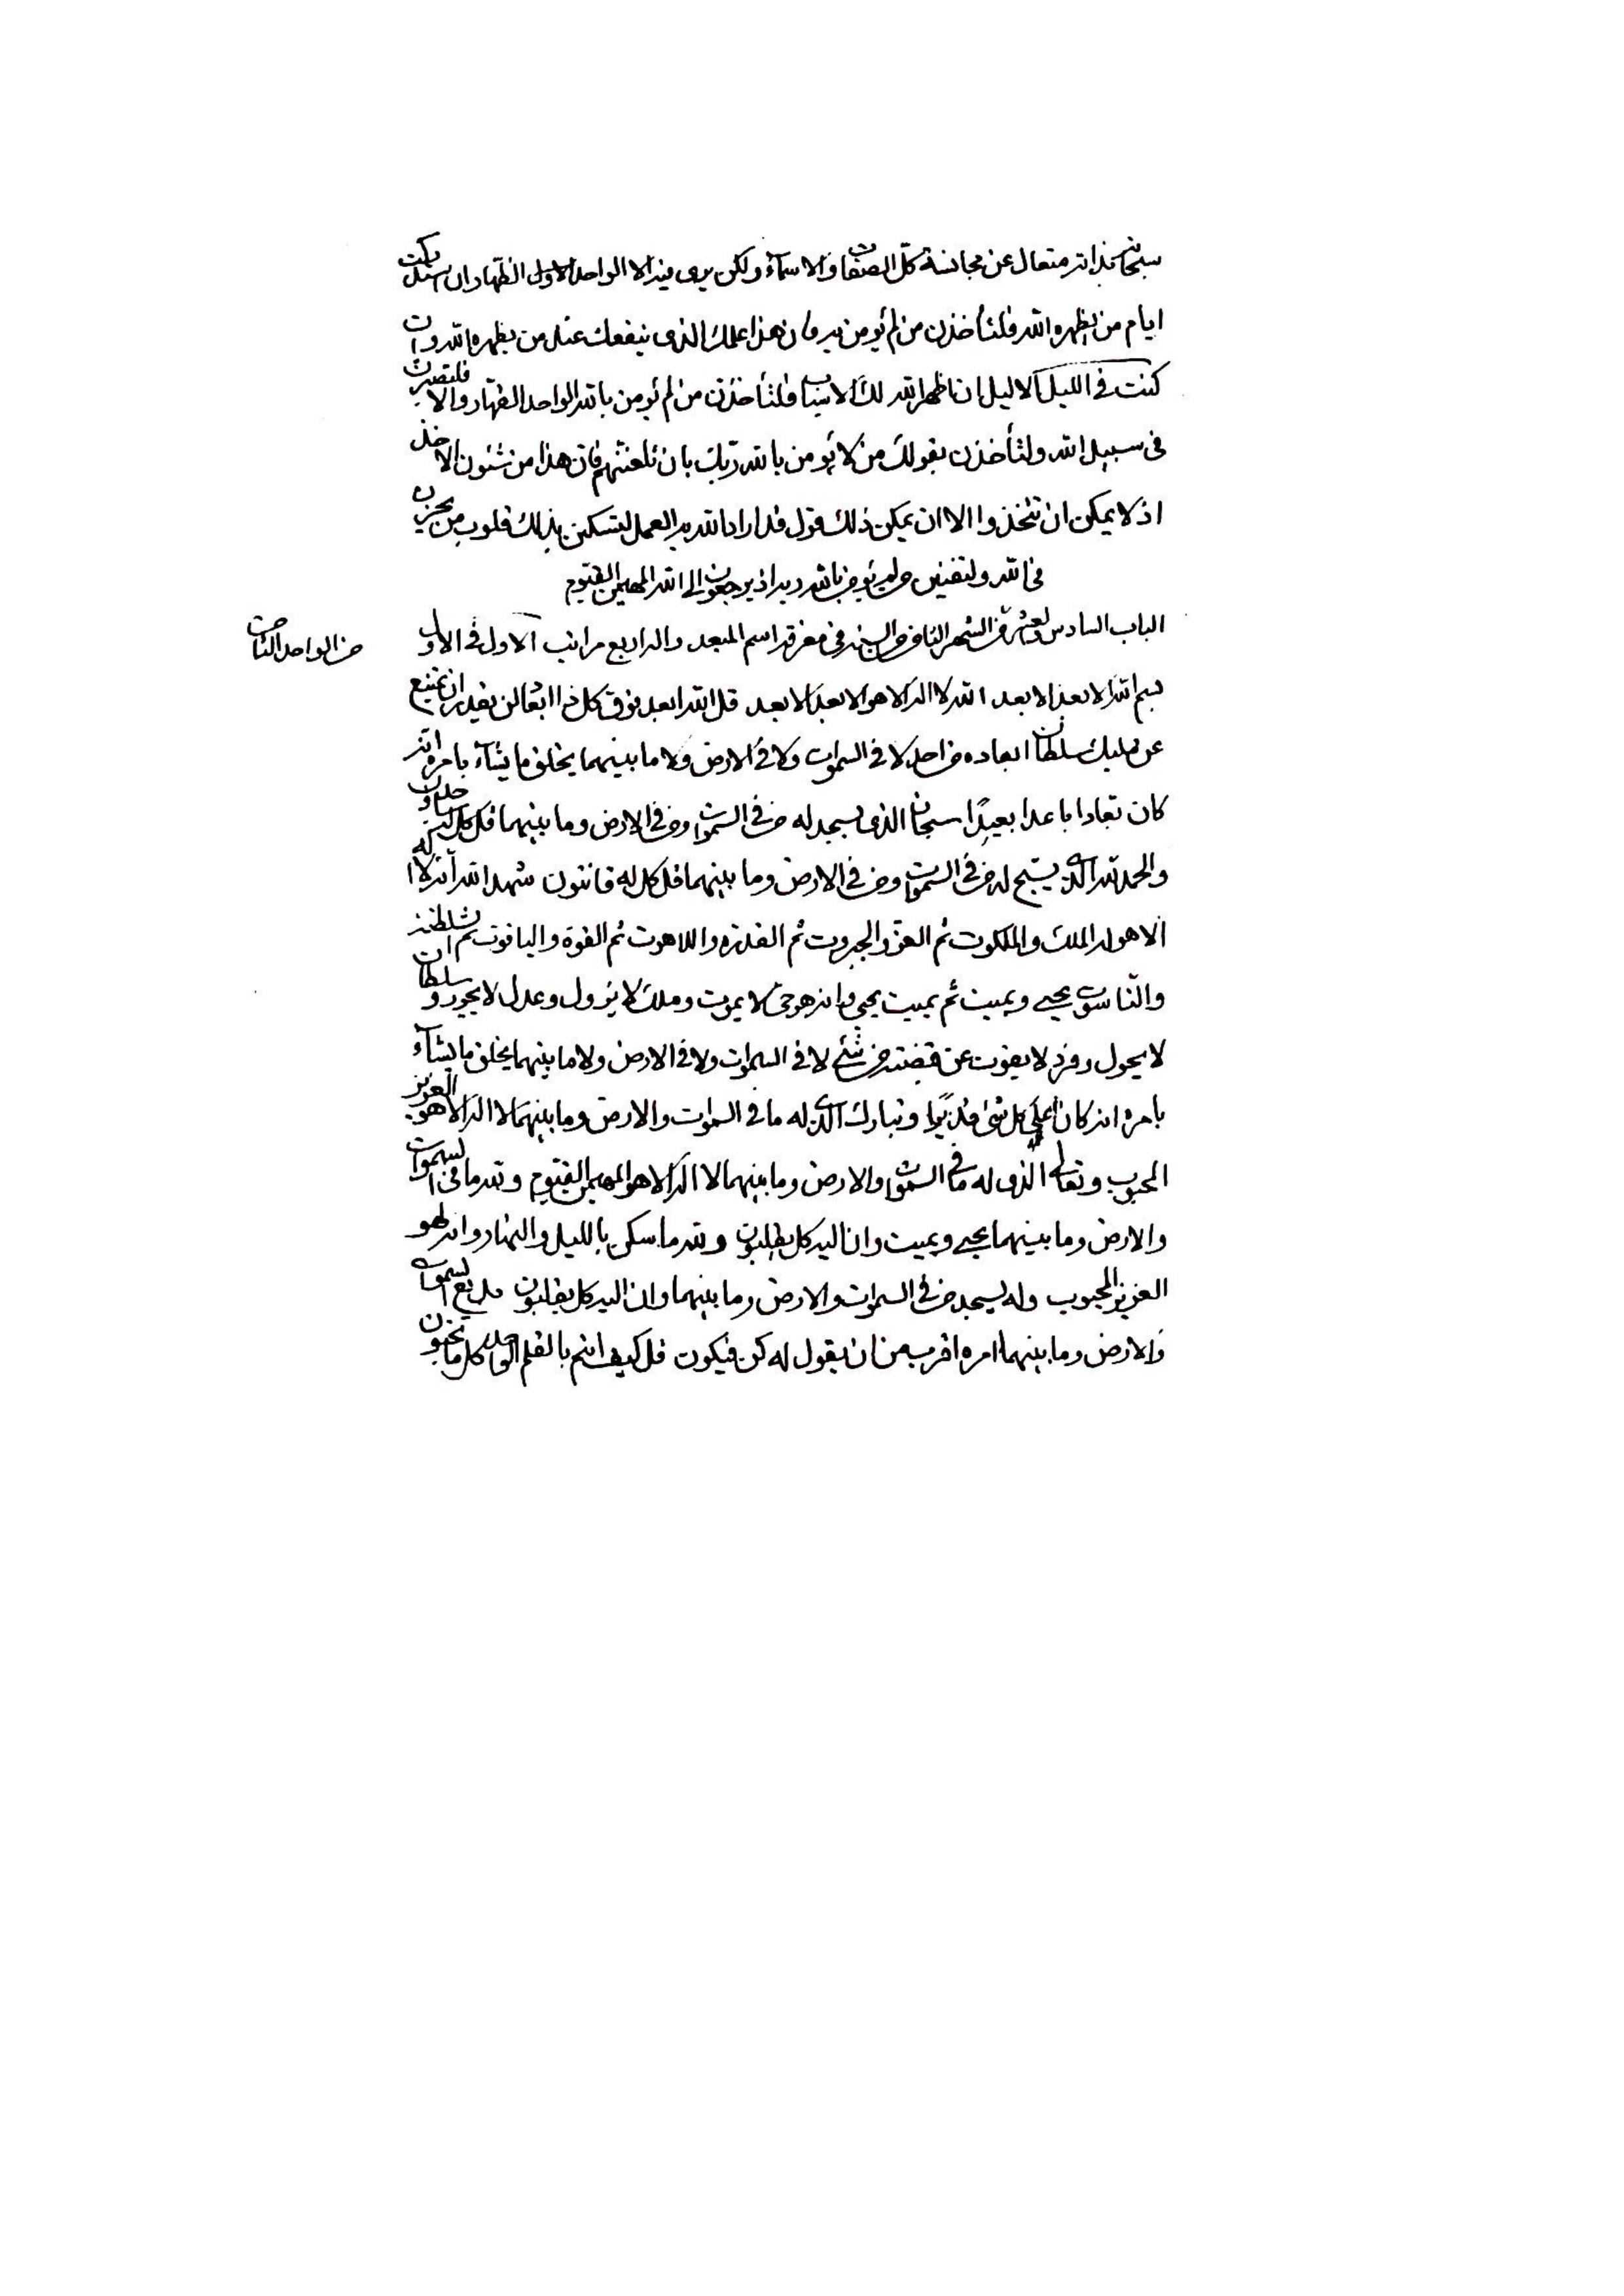 سبحانه بذاته متعال عن مجانسة كل الصفات والاسماء ولكن يرى فيه الا الواحد الاول القهار وان ادركت
ايام من يظهره الله فلتأخذن من لم يؤمن به فان هذا عملك الذى ينفعك عند من يظهره الله وان
كنت فى الليل الاليل ان اظهر الله لك الاسباب فلتأخذن من لم يؤمن بالله الواحد القهار والا فلتصبرن
فى سبيل الله ولتأخذن بقولك من لا يؤمن بالله ربك بان تلعنهم فان هذا من شئون الاخذ
اذ لا يمكن ان تتخذوا الا ان يمكن ذلك قول قد اراد الله به العمل لتسكين بذلك قلوب من يحزن
فى الله من لم يؤمن بالله ربه اذ يرجعون الى الله المهيمن القيوم
الباب السادس والعشر من الشهر الثامن من السنة فى معرفة اسم المبعد وله اربع مراتب الاول فى الاول
من الواحد الثامن
بسم الله الابعد الابعد الله لا اله الا هو الابعد الابعد قل الله ابعد فوق كل ذا ابعاد لن يقدر ان يمتنع
عن مليك سلطان ابعاده من احد لا فى السموات ولا فى الارض ولا ما بينهما يخلق ما يشاء بامره انه
كان بعادا باعدا بعيدا سبحان الذى يسجد له من فى السموات ومن فى الارض وما بينهما قل كل له ساجدون
والحمد لله الذى يسبح له من فى السموات ومن فى الارض وما بينهما قل كل له قانتون شهد الله انه لا اله
الا هو له الملك والملكوت ثم العز والجبروت ثم القدرة واللاهوت ثم القوة والياقوت ثم السلطنة
والناسوت يحيى ويميت ثم يميت ويحيى وانه هو حى لا يموت وملك لا يزول وعدل لا يجور وسلطان
لا يحول وفرد لا يفوت عن قبضته من شئ لا فى السموات ولا فى الارض ولا ما بينهما يخلق ما يشاء
بامره انه كان على كل شئ قديرا وتبارك الذى له ما فى السموات والارض وما بينهما لا اله الا هو العزيز
المحبوب وتعالى الذى له ما فى السموات والارض وما بينهما لا اله الا هو المهيمن القيوم ولله ما فى السموات
والارض وما بينهما يحيى ويميت وان اليه كل يقلبون ولله ما سكن بالليل والنهار وانه لهو
العزيز المحبوب وله يسجد من فى السموات والارض وما بينهما وان اليه كل يقلبون بديع السموات
والارض وما بينهما امره اقرب من ان يقول له كن فيكون قل كيف انتم بالقلم الواحد كل ما تحبون